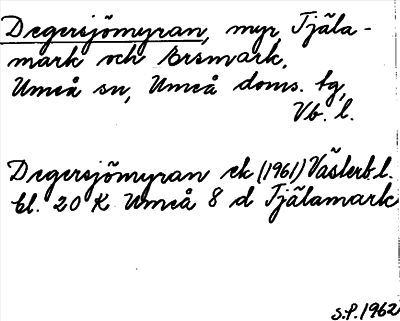 Degersjömyran, myr, Tjäla-
mark och Brsmark,
Umeå sn, Umeå doms. tg,
Vb. l.
Degersjömyran ek (1961) Västerb. l.
bl. 20 K Umeå 8 d Tjälamark
S.P. 1962